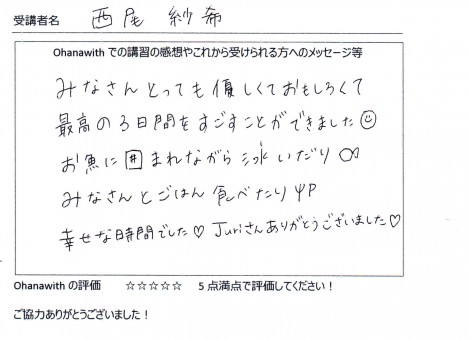 受講者名 西尾 紗希
Ohanawith での講習の感想やこれから受けられる方へのメッセージ等
みなさんとっても優しくておもしろくて
最高の3日間をすごすことができました☺
お魚に囲まれながら泳いだり∞
みなさんとごはん食べたり🍴
幸せな時間でした♡ Juriさんありがとうございました♡
Ohanawith の評価 ☆☆☆☆☆ 5点満点で評価してください！
ご協力ありがとうございました！